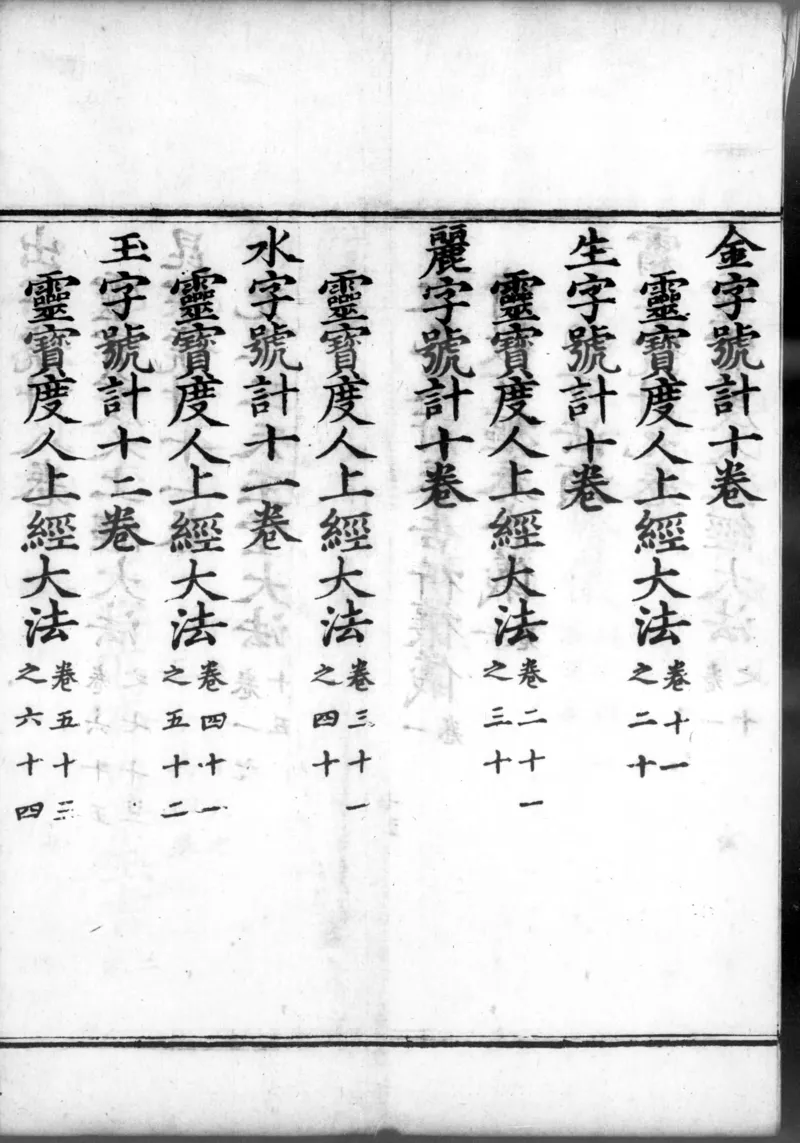 金字號計十卷
靈寶度人上經大法卷十一之二十
生字號計十卷
靈寶度人上經大法卷二十一之三十
麗字號計十卷
靈寶度人上經大法卷三十一之四十
水字號計十一卷
靈寶度人上經大法卷四十一之五十二
玉字號計十二卷
靈寶度人上經大法卷五十三之六十四